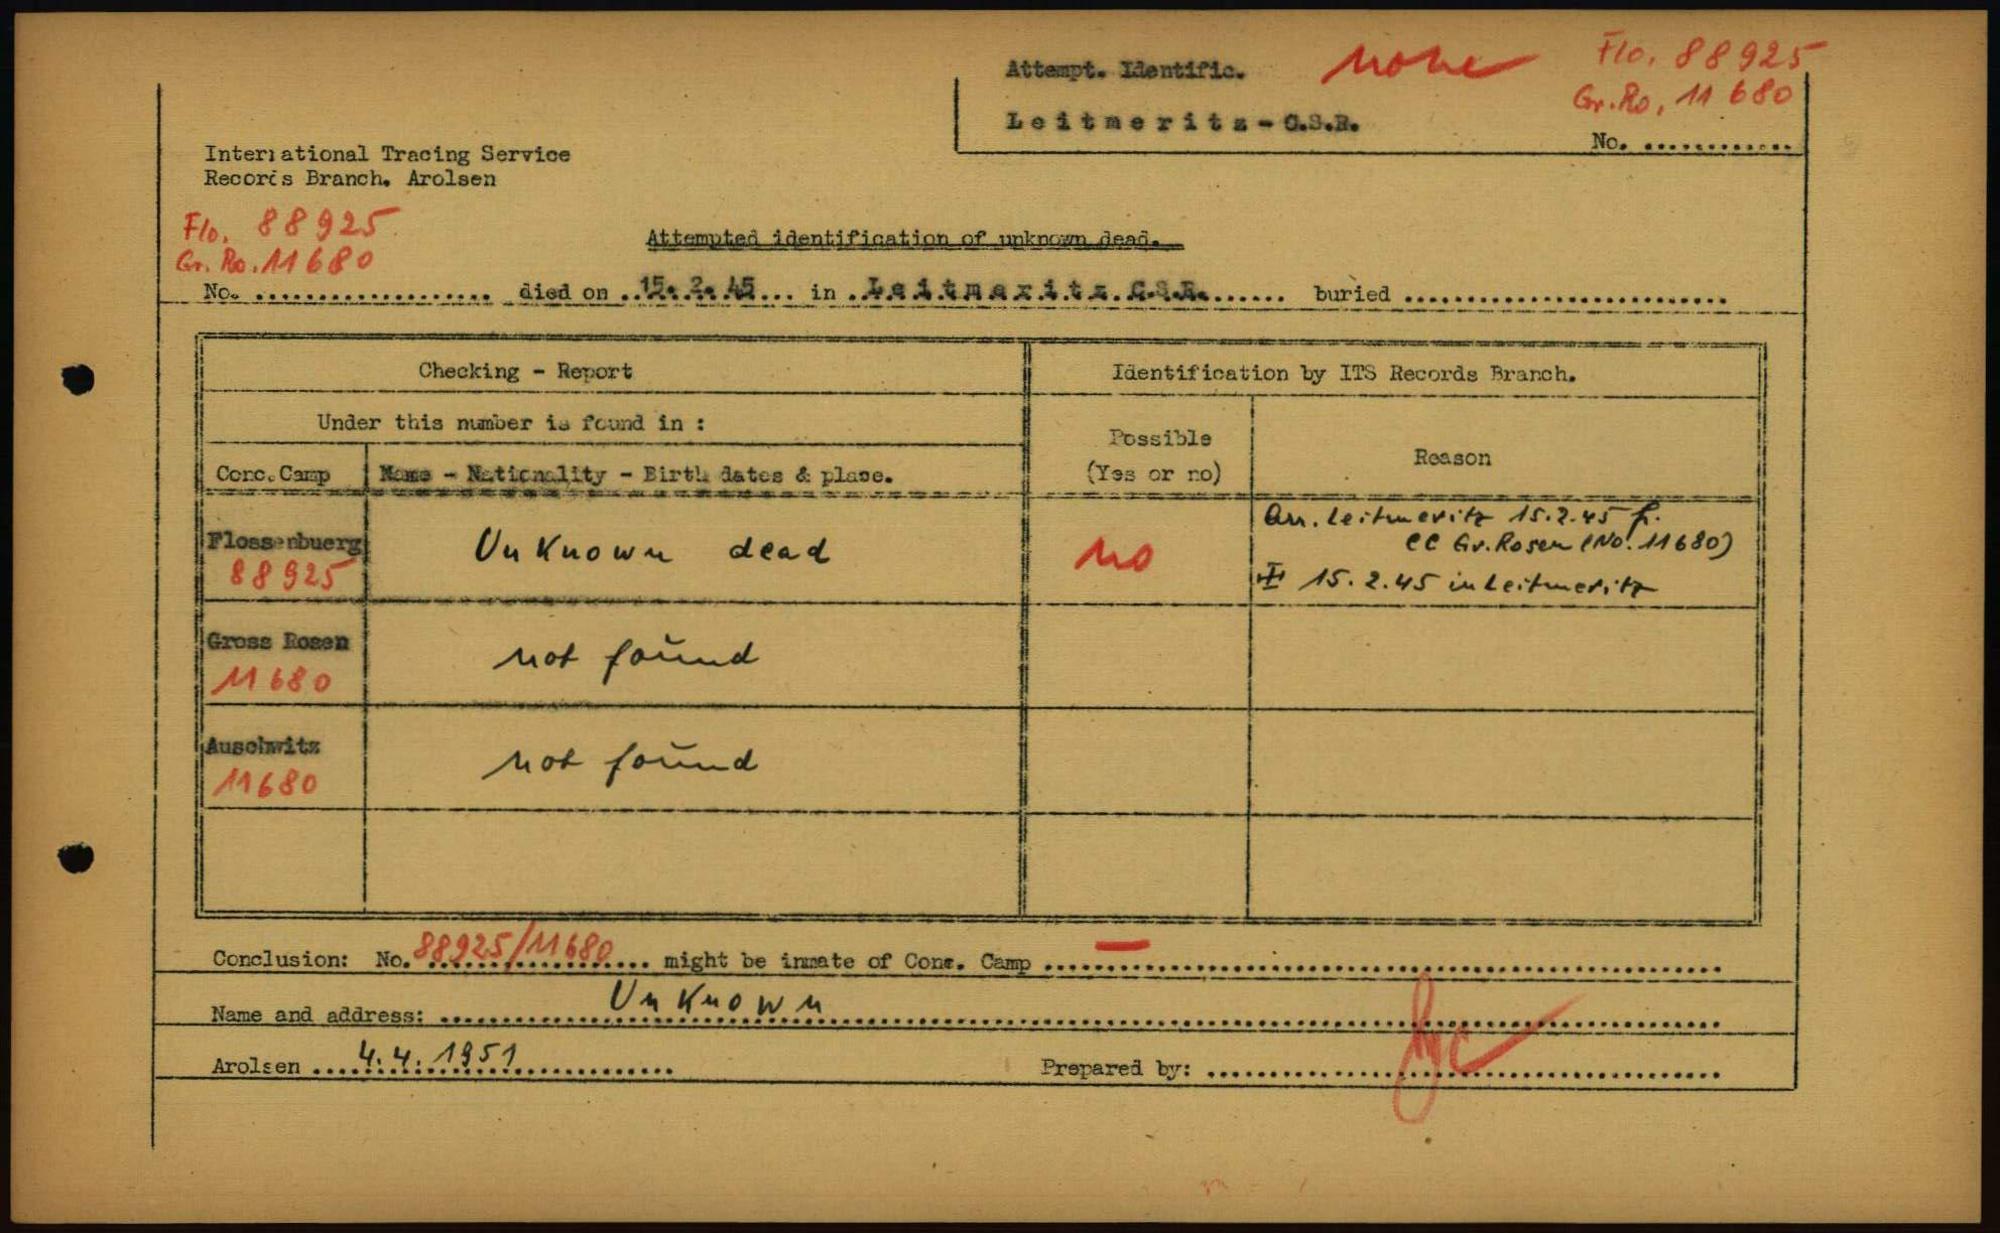 Attempt. Identific. none Flo. 88925
Gr.Ro. 11680
Leitmeritz-C.S.R.
No. ............
International Tracing Service
Records Branch. Arolsen
Flo. 88925
Gr. Ro. 11680
Attempted identification of unknown dead.
No. .................... died on ..15. 2. 45... in ..Leitmeritz C.S.R....... buried ..........................
Checking - Report
Identification by ITS Records Branch.
Under this number is found in :
Possible
(Yes or no)
Reason
Conc.Camp
Name - Nationality - Birth dates & place.
Flossenbuerg
88925
Unknown dead
no
Arr. Leitmeritz 15.2.45 f.
CC Gr. Rosen (No. 11680)
15.2.45 in Leitmeritz
Gross Rosen
11680
not found
Auschwitz
11680
not found
Conclusion: No. 88925/11680 might be inmate of Conc. Camp —
Name and address: Unknown
Arolsen 4.4.1951
Prepared by: